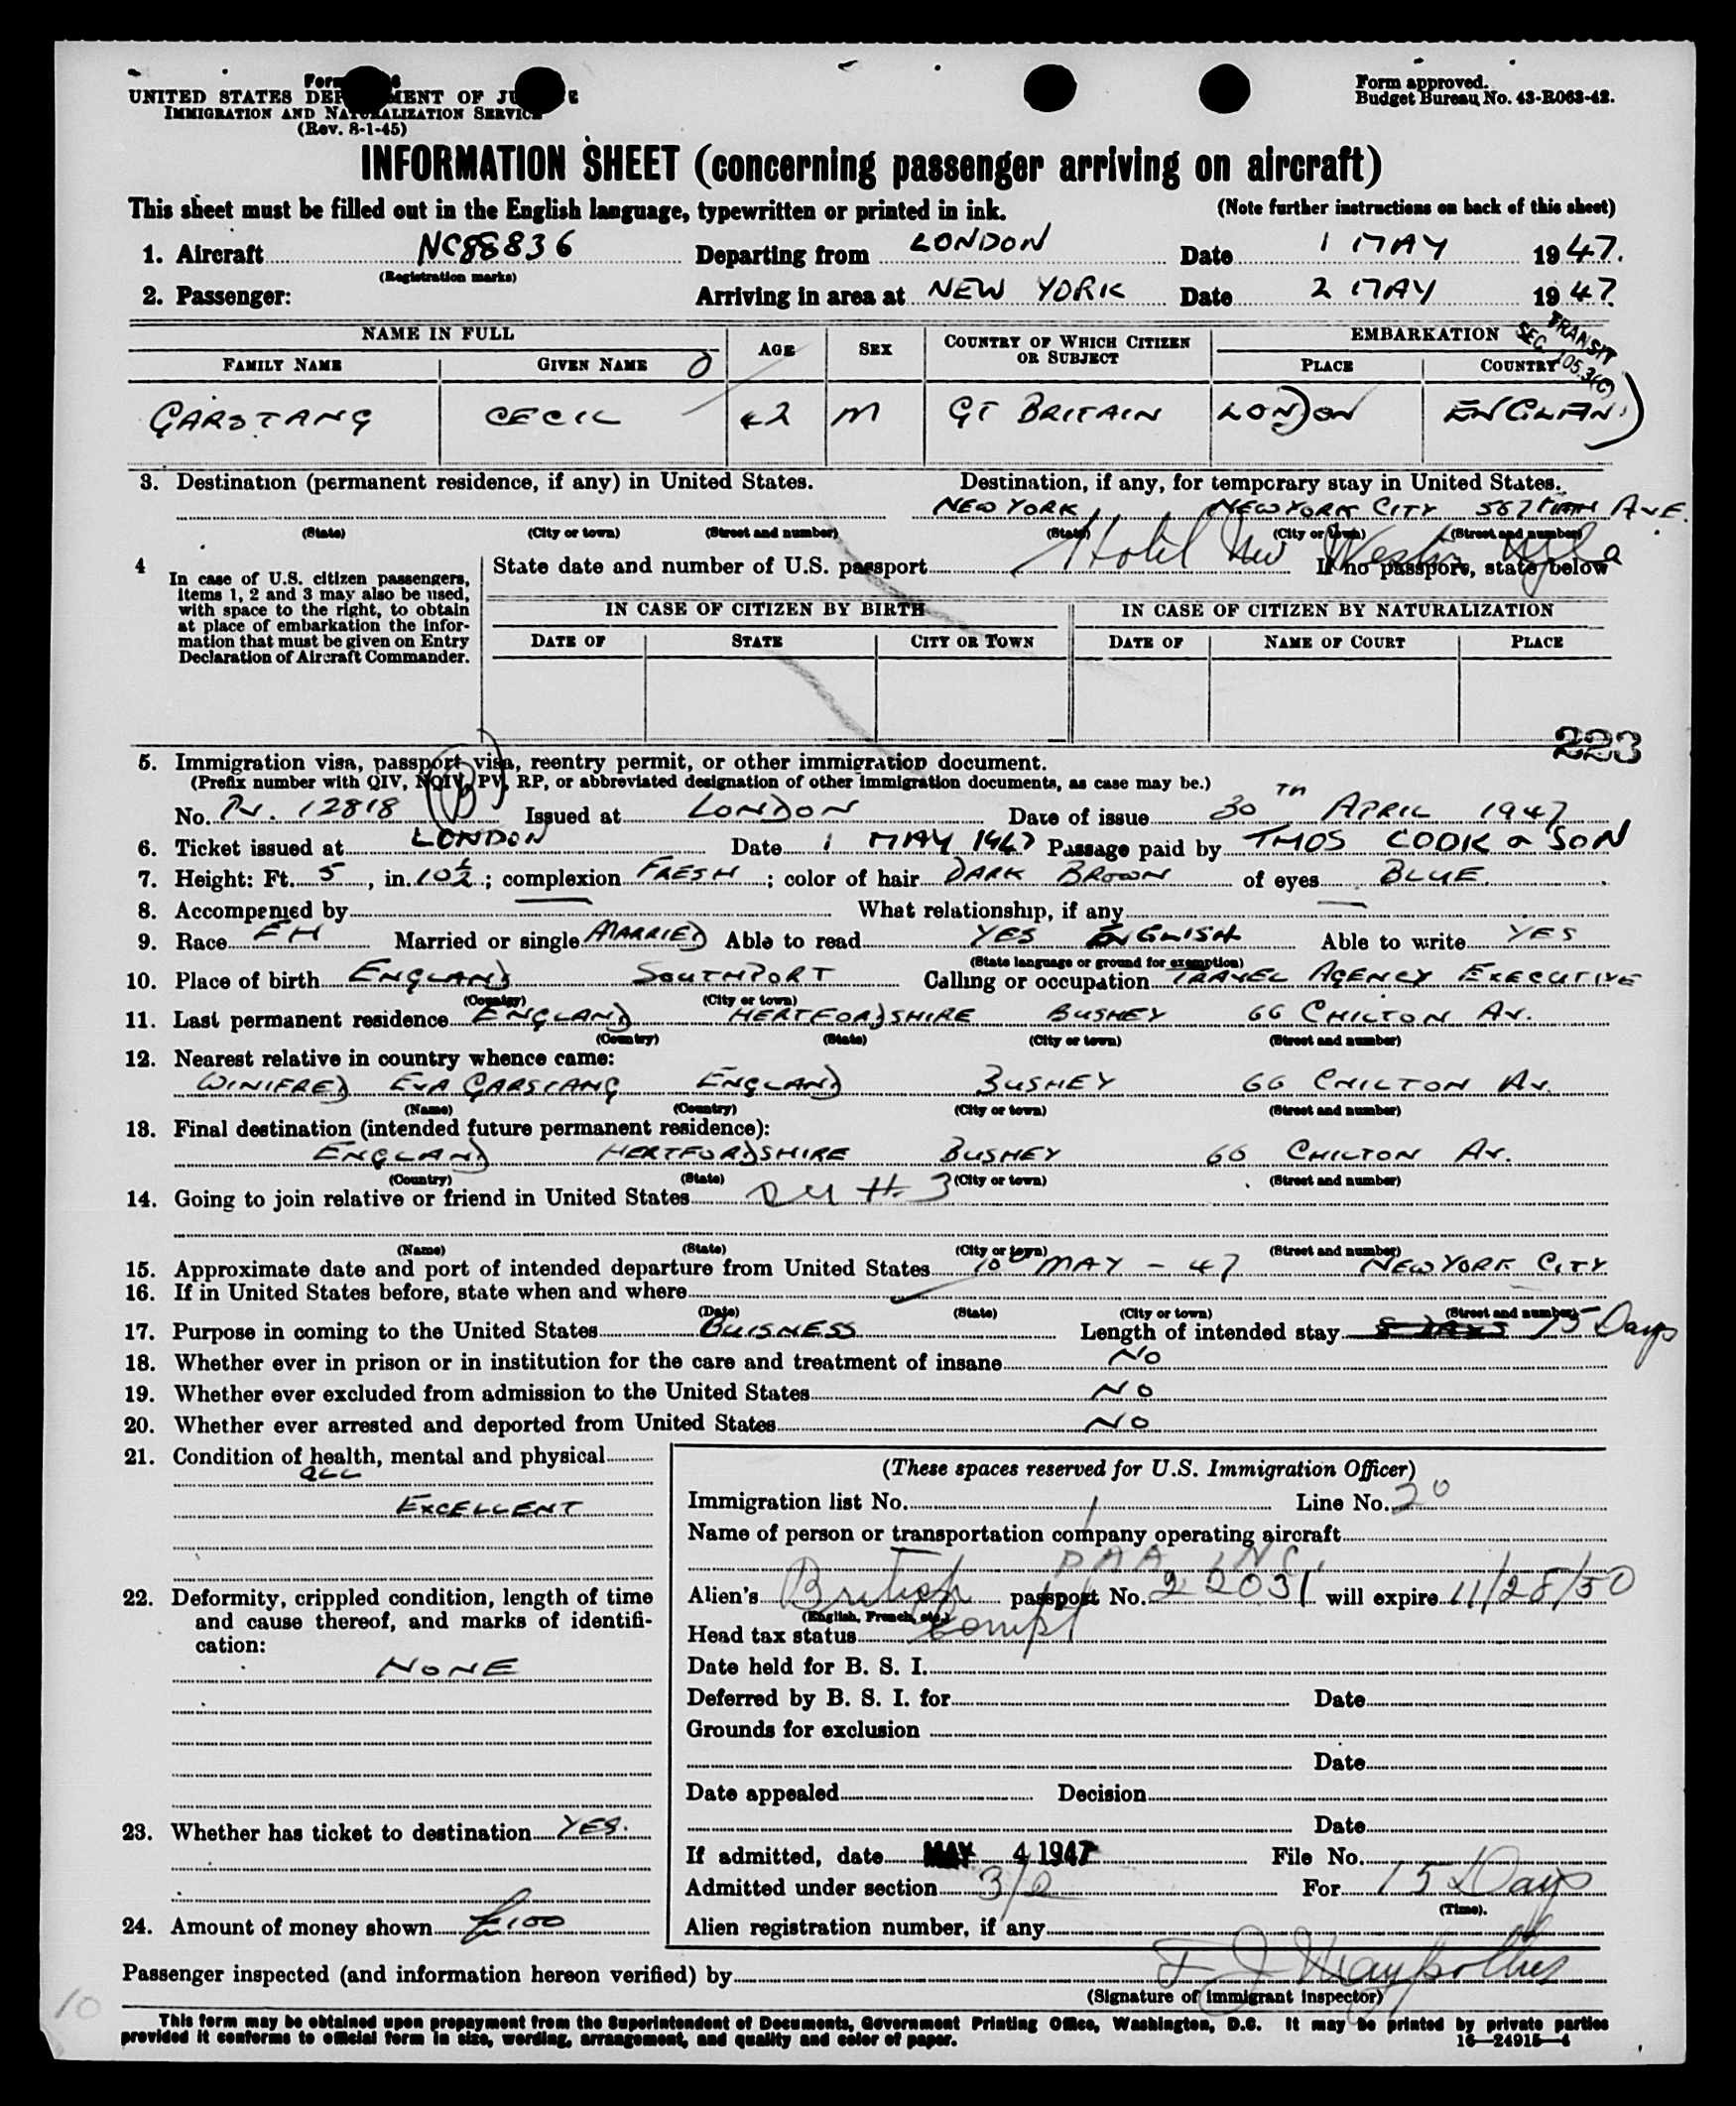 Form
UNITED STATES DEPARTMENT OF JUSTICE
IMMIGRATION AND NATURALIZATION SERVICE
(Rev. 8-1-45)
Form approved.
Budget Bureau No. 43-R063-42.
INFORMATION SHEET (concerning passenger arriving on aircraft)
This sheet must be filled out in the English language, typewritten or printed in ink. (Note further instructions on back of this sheet)
1. Aircraft NC88836 Departing from LONDON Date 1 MAY 1947.
(Registration marks)
2. Passenger: Arriving in area at NEW YORK Date 2 MAY 1947
TRANSIT
SEC. 105.3(C)
NAME IN FULL AGE SEX COUNTRY OF WHICH CITIZEN OR SUBJECT EMBARKATION
FAMILY NAME GIVEN NAME PLACE COUNTRY
GARSTANG CECIL 42 M GT BRITAIN LONDON ENGLAND
3. Destination (permanent residence, if any) in United States. Destination, if any, for temporary stay in United States.
NEW YORK NEW YORK CITY 587 FIFTH AVE.
(State) (City or town) (Street and number) (State) (City or town) (Street and number)
Hotel New Weston
4 In case of U.S. citizen passengers, items 1, 2 and 3 may also be used, with space to the right, to obtain at place of embarkation the information that must be given on Entry Declaration of Aircraft Commander.
State date and number of U.S. passport If no passport, state below
IN CASE OF CITIZEN BY BIRTH IN CASE OF CITIZEN BY NATURALIZATION
DATE OF STATE CITY OR TOWN DATE OF NAME OF COURT PLACE
223
5. Immigration visa, passport visa, reentry permit, or other immigration document.
(Prefix number with QIV, NQIV, PV, RP, or abbreviated designation of other immigration documents, as case may be.)
No. PV. 12818 Issued at LONDON Date of issue 30TH APRIL 1947
6. Ticket issued at LONDON Date 1 MAY 1947 Passage paid by THOS COOK & SON
7. Height: Ft. 5, in. 10½; complexion FRESH; color of hair DARK BROWN of eyes BLUE.
8. Accompanied by — What relationship, if any —
9. Race Married or single MARRIED Able to read YES ENGLISH Able to write YES
(State language or ground for exemption)
10. Place of birth ENGLAND SOUTHPORT Calling or occupation TRAVEL AGENCY EXECUTIVE
(Country) (City or town)
11. Last permanent residence ENGLAND HERTFORDSHIRE BUSHEY 66 CHILTON AV.
(Country) (State) (City or town) (Street and number)
12. Nearest relative in country whence came:
WINIFRED EVA GARSTANG ENGLAND BUSHEY 66 CHILTON AV.
(Name) (Country) (City or town) (Street and number)
13. Final destination (intended future permanent residence):
ENGLAND HERTFORDSHIRE BUSHEY 66 CHILTON AV.
(Country) (State) (City or town) (Street and number)
14. Going to join relative or friend in United States # 3
(Name) (State) (City or town) (Street and number)
15. Approximate date and port of intended departure from United States 10 MAY - 47 NEW YORK CITY
16. If in United States before, state when and where
(Date) (State) (City or town) (Street and number)
17. Purpose in coming to the United States BUISNESS Length of intended stay 15 Days
18. Whether ever in prison or in institution for the care and treatment of insane NO
19. Whether ever excluded from admission to the United States NO
20. Whether ever arrested and deported from United States NO
21. Condition of health, mental and physical
ALL
EXCELLENT
22. Deformity, crippled condition, length of time and cause thereof, and marks of identification:
NONE
23. Whether has ticket to destination YES.
24. Amount of money shown £100
(These spaces reserved for U.S. Immigration Officer)
Immigration list No. 1 Line No. 20
Name of person or transportation company operating aircraft
PAA INC.
Alien's British passport No. 22031 will expire 11/28/50
(English, French, etc.)
Head tax status Exempt
Date held for B. S. I.
Deferred by B. S. I. for Date
Grounds for exclusion
Date
Date appealed Decision
Date
If admitted, date MAY 4 1947 File No.
Admitted under section 3/2 For 15 Days
(Time).
Alien registration number, if any
Passenger inspected (and information hereon verified) by
(Signature of immigrant inspector)
10
This form may be obtained upon prepayment from the Superintendent of Documents, Government Printing Office, Washington, D.C. It may be printed by private parties
provided it conforms to official form in size, wording, arrangement, and quality and color of paper. 16—24915-4